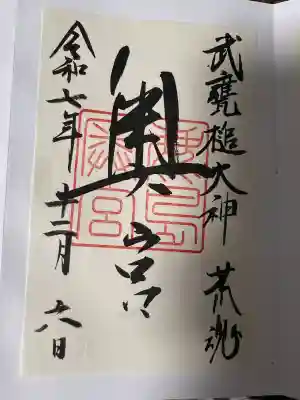 武甕槌大神 荒魂
奥宮
鹿島
奥宮
令和七年 十二月 六日